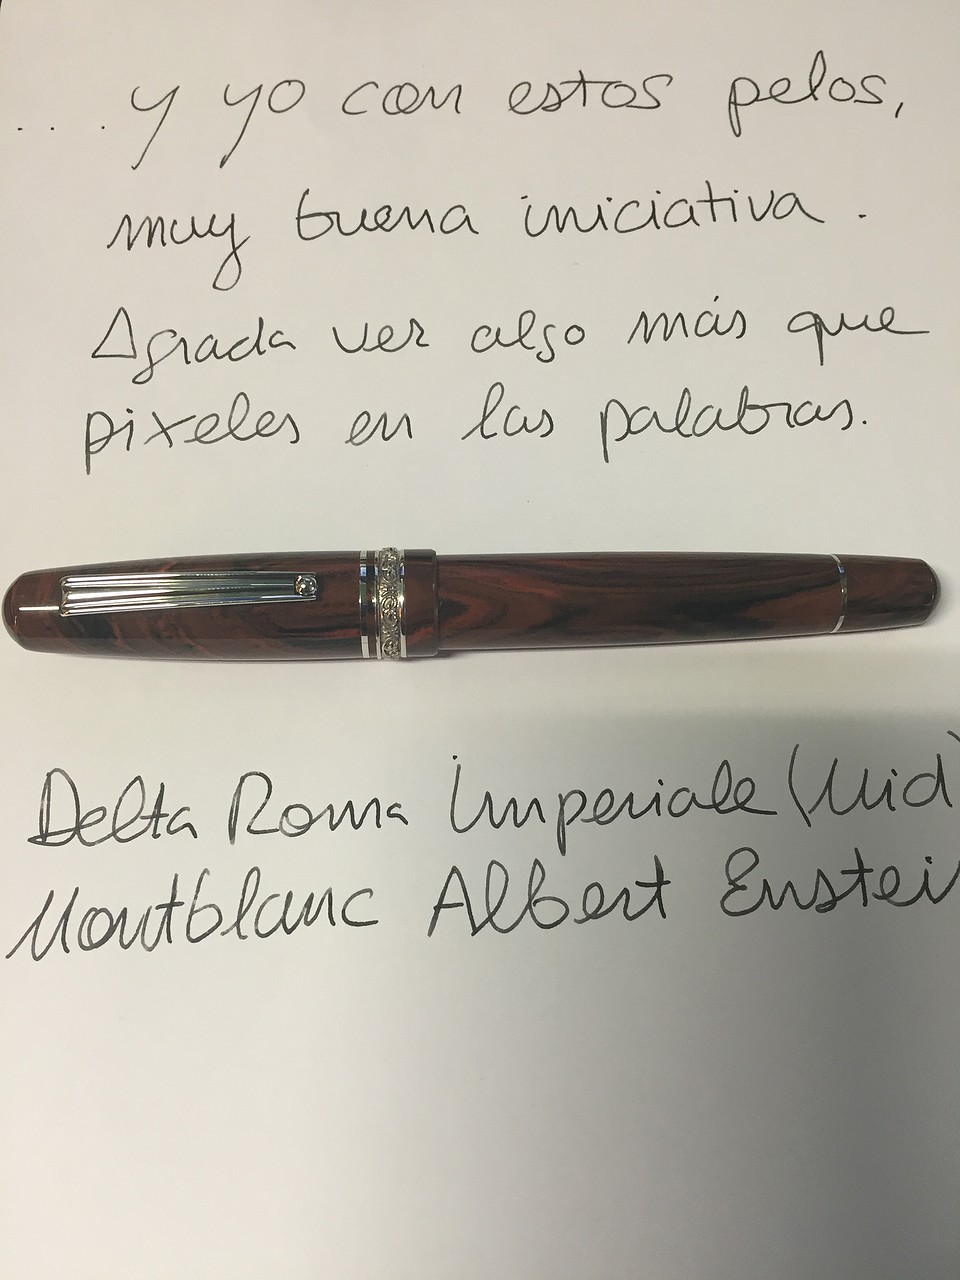 ....y yo con estos pelos,
muy buena iniciativa.
Agrada ver algo más que
pixeles en las palabras.
Delta Roma Imperiale (Mid)
Montblanc Albert Enstein